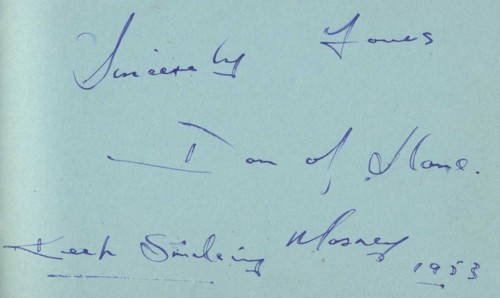 Sincerely Yours
of
Keep Smiling Mosney 1953